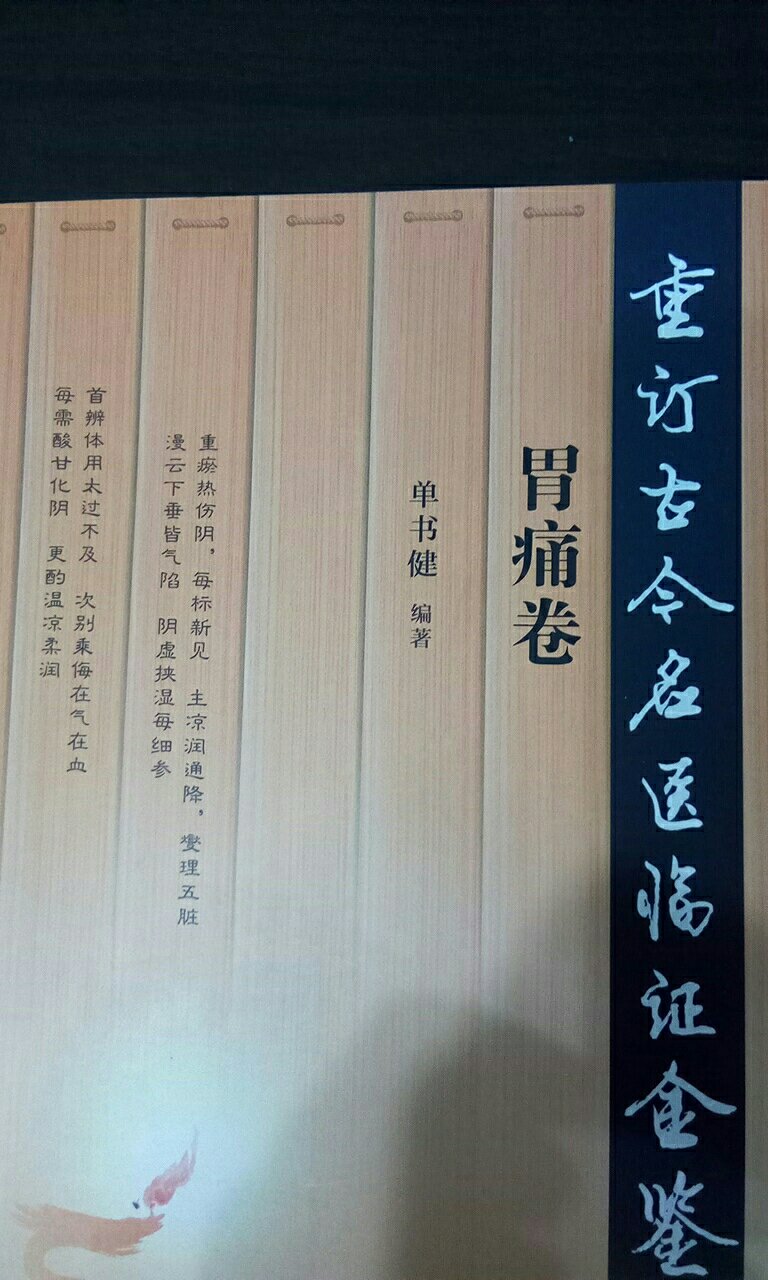 重订古今名医临证金鉴
胃痛卷
单书健 编著
重瘀热伤阴，每标新见 主凉润通降，燮理五脏
漫云下垂皆气陷 阴虚挟湿每细参
首辨体用太过不及 次别乘侮在气在血
每需酸甘化阴 更酌温凉柔润